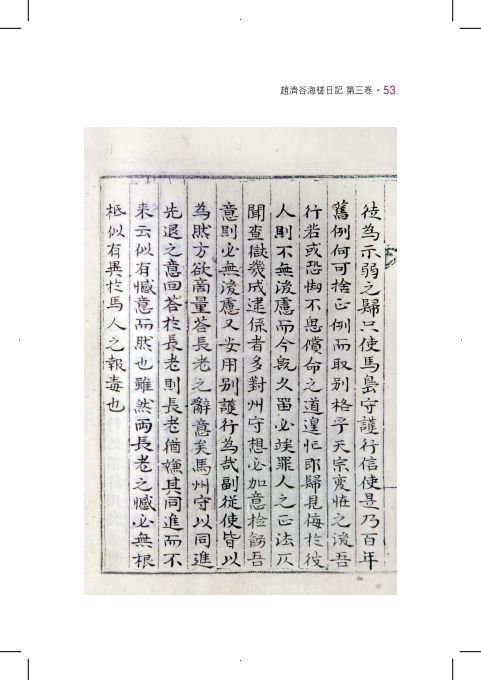 趙濟谷海槎日記 第三卷 · 53
徒為示弱之歸只使馬島守護行信使是乃百年
舊例何可捨正例而取別格乎天宗変恠之後吾
行若或恐㤼不思償命之道遑忙卽歸見侮於彼
人則不無後慮而今旣久留必竢罪人之正法仄
聞查獄幾成逮係者多對州守想必加意檢飭吾
意則必無後慮又安用別護行為哉副從使皆以
為財方欲商量荅長老之辭意矣馬州守以同進
先退之意回荅於長老則長老猶嫌其同進而不
来云似有憾意而然也雖然两長老之憾必無根
柢似有異於馬人之報毒也